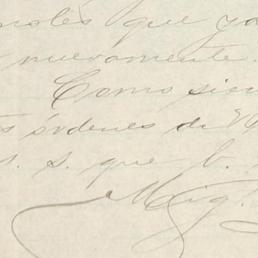 moles que ya
nuevamente.
Como siem
s órdenes de V
s. s. que b.
Mig.